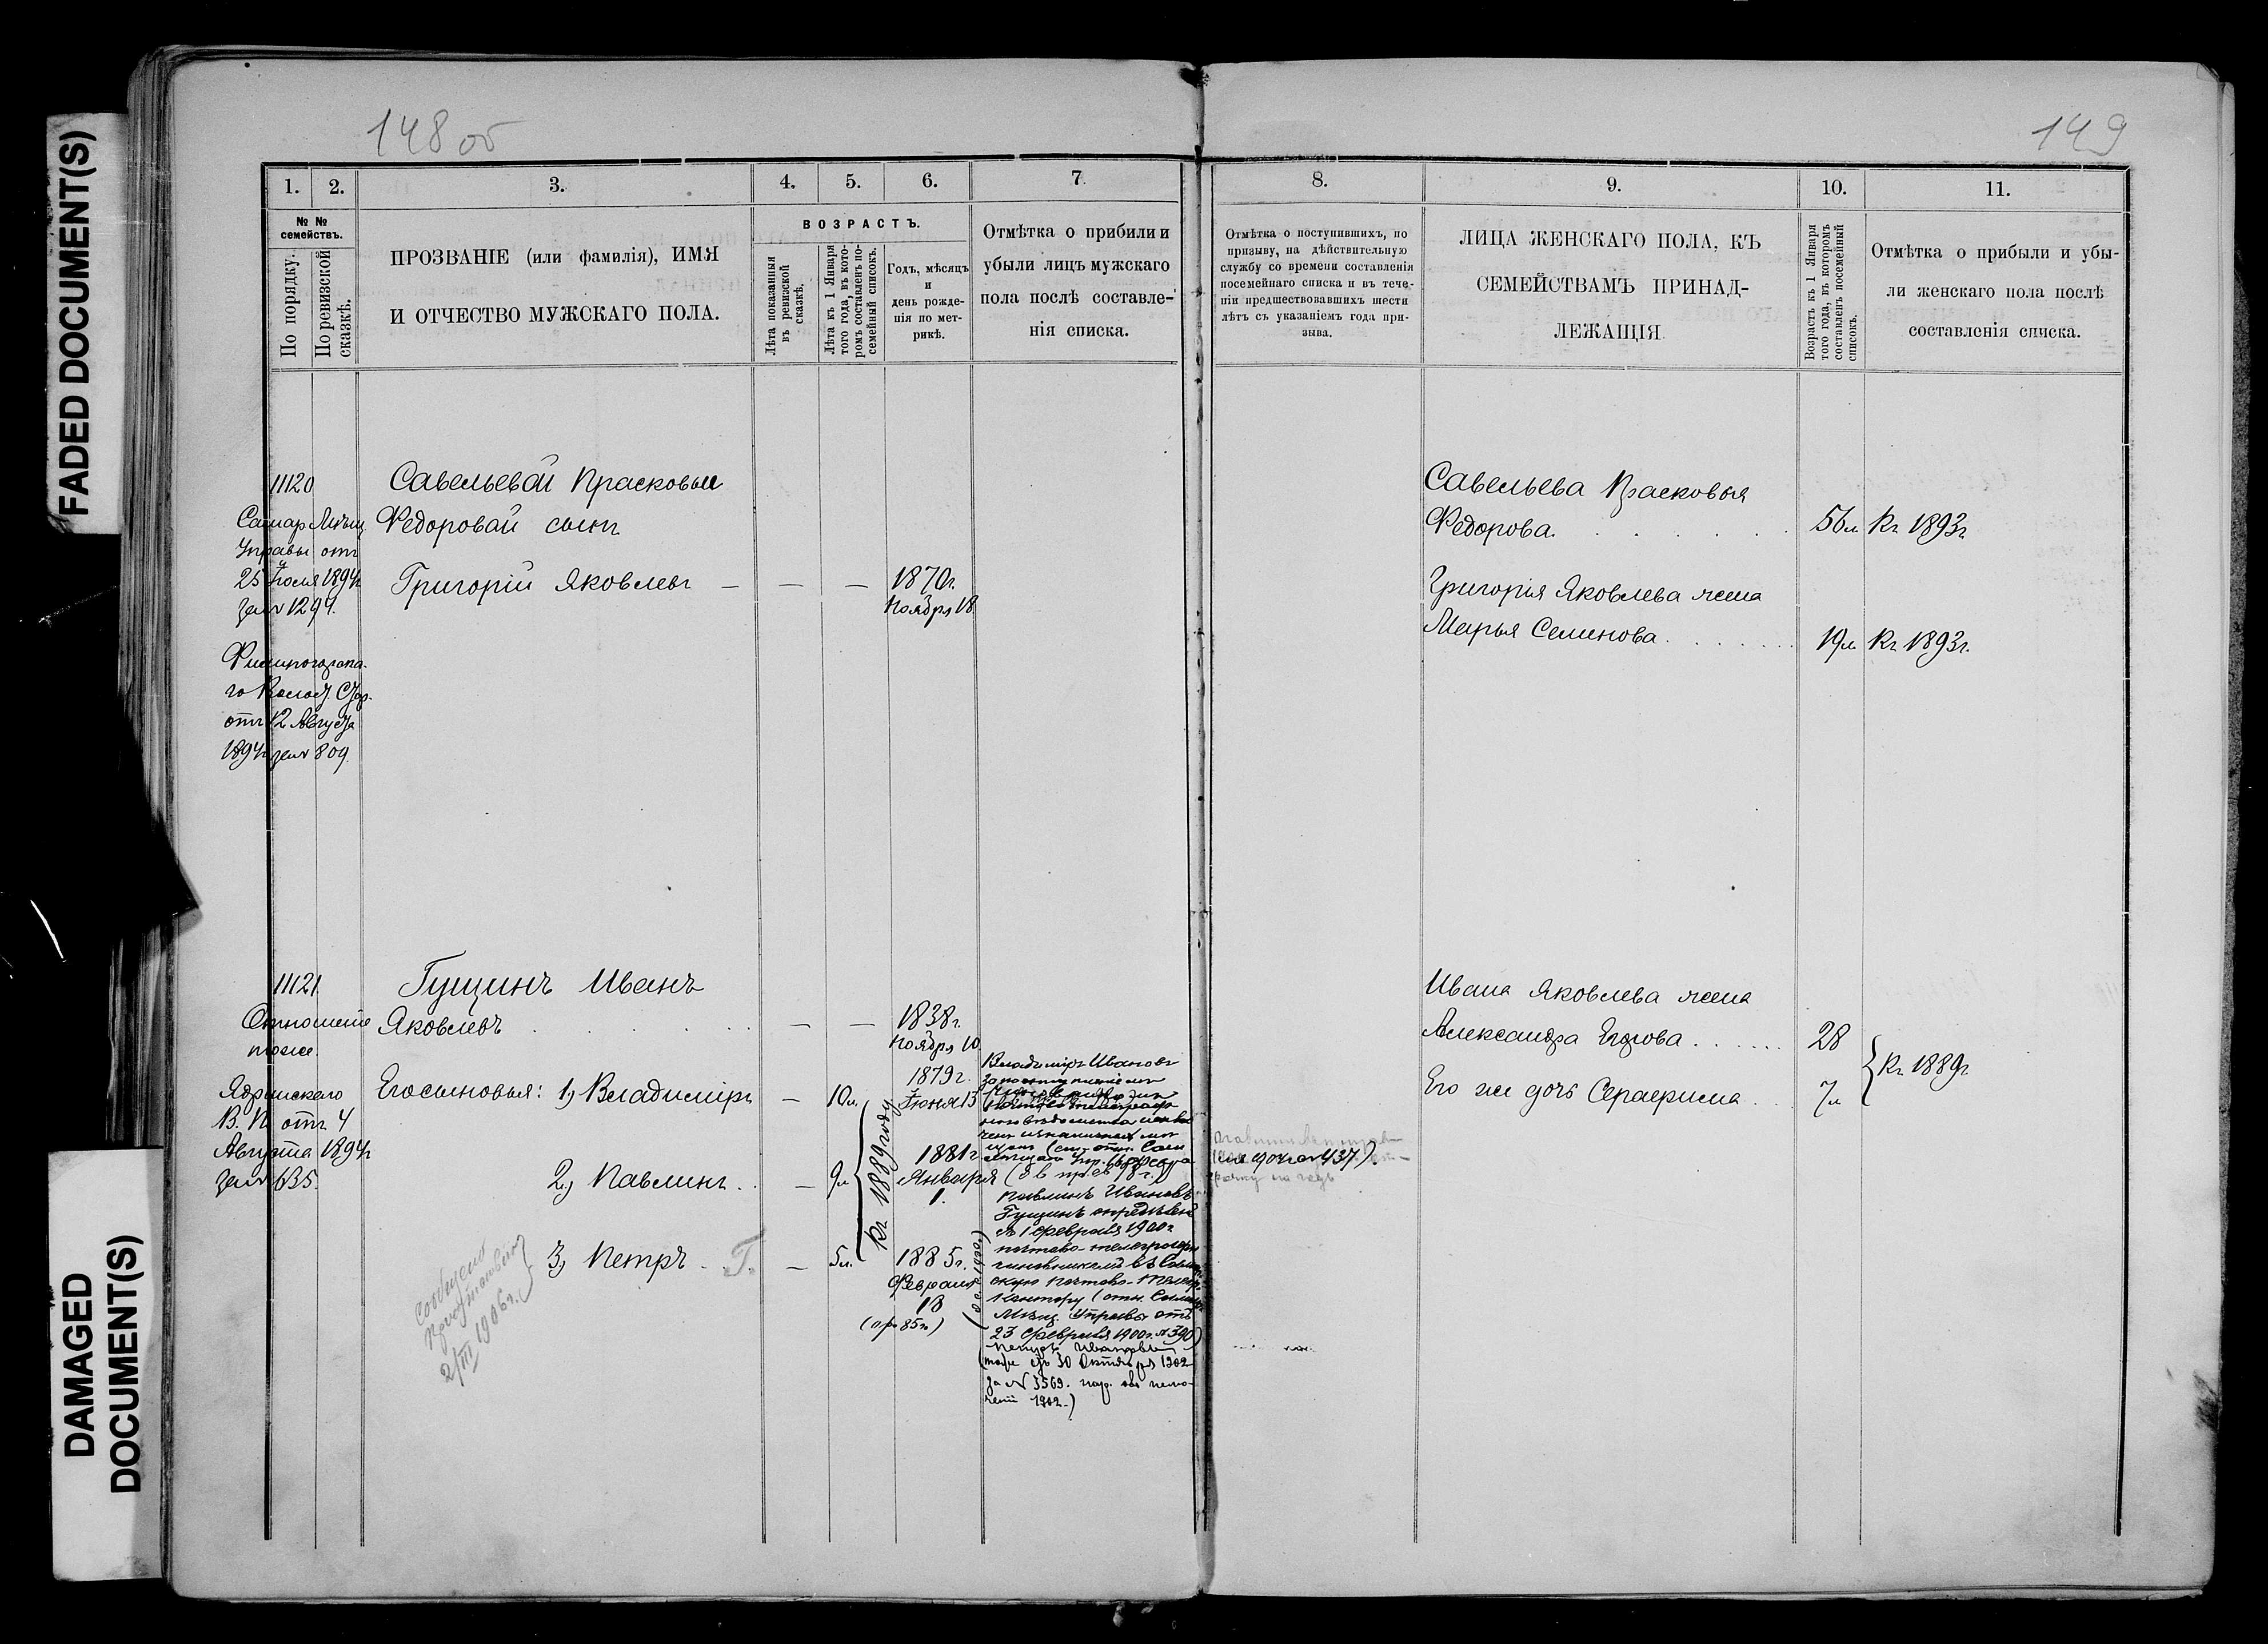 FADED DOCUMENT(S)
DAMAGED
DOCUMENT(S)
148 об
1. 2. 3. 4. 5. 6. 7.
№ №
семействъ.
По порядку.
По ревизской
сказкѣ.
ПРОЗВАНІЕ (или фамилія), ИМЯ
И ОТЧЕСТВО МУЖСКАГО ПОЛА.
ВОЗРАСТЪ.
Лѣта показанныя
въ ревизской
сказкѣ.
Лѣта къ 1 Января
того года, въ кото-
ромъ составленъ по-
семейный списокъ.
Годъ, мѣсяцъ
и
день рожде-
нія по мет-
рикѣ.
Отмѣтка о прибили и
убыли лицъ мужскаго
пола послѣ составле-
нія списка.
11120
Самар Мѣщ.
Управы отъ
25 Іюля 1894г
за № 1294.
го Волост. Стар.
отъ 12 Августа
1894г за № 809.
Савельевой Прасковьи
Федоровой сынъ
Григорій Яковлевъ — — — 1870г.
Ноября 18
11121.
Отношеніе
тоже.
Ядринскаго
В. П. отъ 4
Августа 1894г
за № 635.
Гущинъ Иванъ
Яковлевъ — — 1838г.
Ноября 10
Его сыновья: 1, Владиміръ — 10л. 1879г.
Іюня 13
2, Павлинъ. — 9л 1881г
Января
1.
3, Петръ. Г. — 5л. 1885г.
Февраля
18
(пр. 85г.)
къ 1889 году
Сообщено
2/III 1906г.
Владиміръ Ивановъ
Павлинъ Ивановъ
Гущинъ опредѣленъ
съ 1 февраля 1900г
почтово-телеграфн
чиновникомъ въ Самар
скую почтово-телегр.
контору (отн. Самар
Мѣщ. Управы отъ
23 февраля 1900г. № 390)
30 Октября 1902
за № 3569.
1902.)
149
8. 9. 10. 11.
Отмѣтка о поступившихъ, по
призыву, на дѣйствительную
службу со времени составленія
посемейнаго списка и въ тече-
ніи предшествовавшихъ шести
лѣтъ съ указаніемъ года при-
зыва.
ЛИЦА ЖЕНСКАГО ПОЛА, КЪ
СЕМЕЙСТВАМЪ ПРИНАД-
ЛЕЖАЩІЯ
Возрастъ къ 1 Января
того года, въ которомъ
составленъ посемейный
списокъ.
Отмѣтка о прибыли и убы-
ли женскаго пола послѣ
составленія списка.
Савельева Прасковья
Федорова. 56л Къ 1893г
Григорія Яковлева жена
Марья Семенова. 19л Къ 1893г.
Ивана Яковлева жена
Александра Егорова. 28
Его же дочь Серафима 7л
Къ 1889г